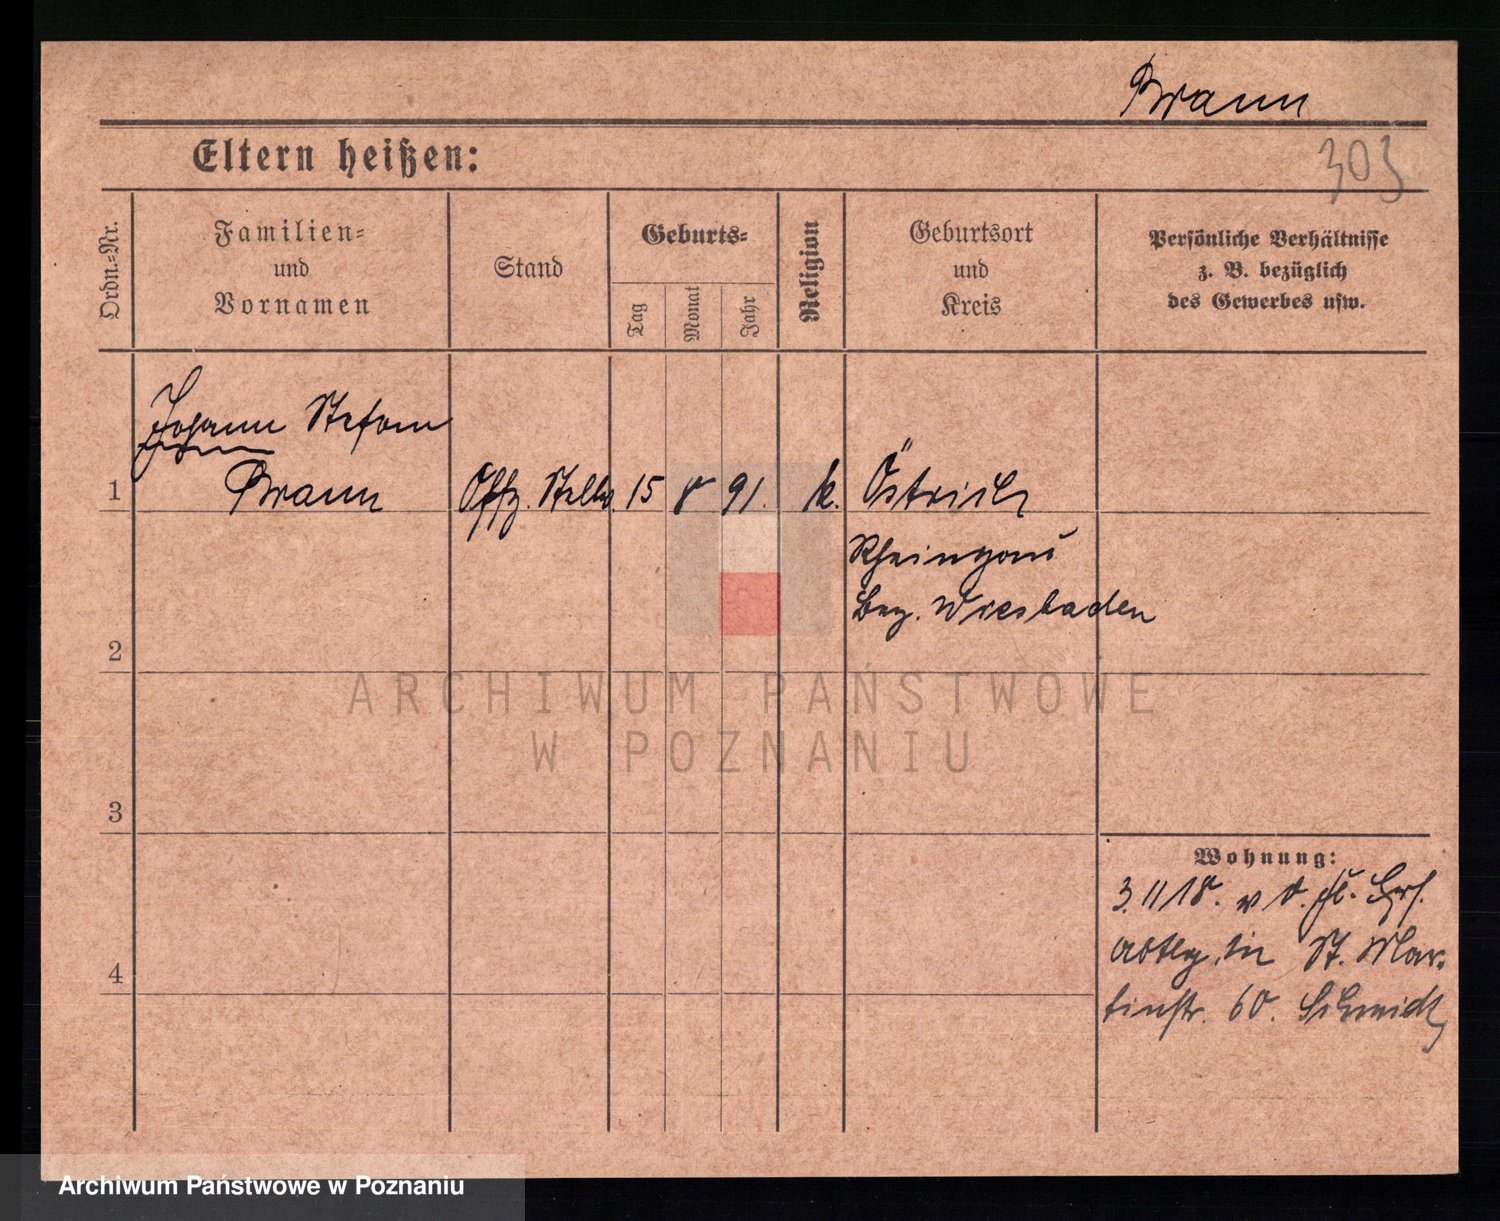 Braun
303
Eltern heißen:
Ordn.-Nr.
Familien-
und
Vornamen
Stand
Geburts-
Tag
Monat
Jahr
Religion
Geburtsort
und
Kreis
Persönliche Verhältnisse
z. B. bezüglich
des Gewerbes usw.
Johann Stefan
1 Braun Offz. Stellv. 15 8 91. k. Östrich
Rheingau
Bez. Wiesbaden
2
3
4
Wohnung:
3.11 18. v d. Fl. Ers.
abtlg. in St. Mar-
tinstr. 60. Schmidt
ARCHIWUM PAŃSTWOWE
W POZNANIU
Archiwum Państwowe w Poznaniu